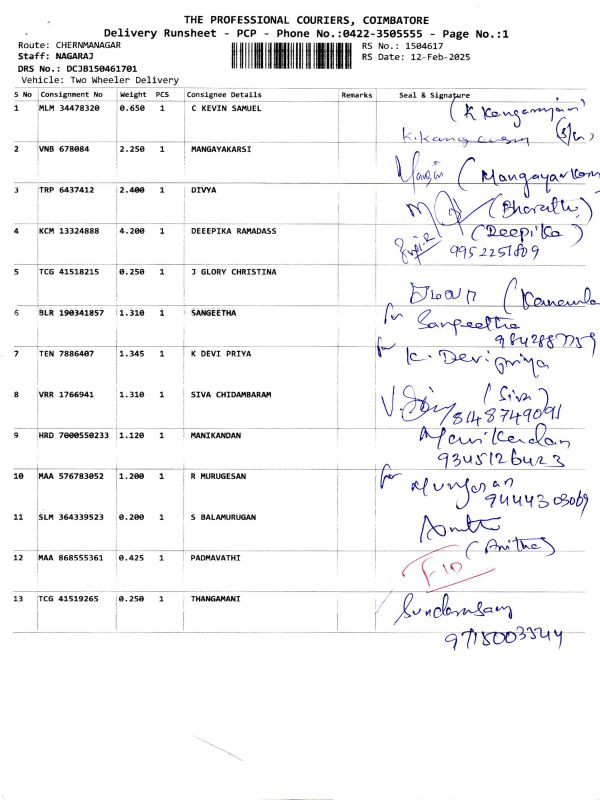 THE PROFESSIONAL COURIERS, COIMBATORE
Delivery Runsheet - PCP - Phone No.:0422-3505555 - Page No.:1
Route: CHERNMANAGAR
RS No.: 1504617
Staff: NAGARAJ
RS Date: 12-Feb-2025
DRS No.: DCJB150461701
Vehicle: Two Wheeler Delivery
S No Consignment No Weight PCS Consignee Details Remarks Seal & Signature
1 MLM 34478320 0.650 1 C KEVIN SAMUEL
2 VNB 678084 2.250 1 MANGAYAKARSI
3 TRP 6437412 2.400 1 DIVYA (Bharathi)
4 KCM 13324888 4.200 1 DEEEPIKA RAMADASS (Deepika)
9952251809
5 TCG 41518215 0.250 1 J GLORY CHRISTINA
6 BLR 190341857 1.310 1 SANGEETHA for Sangeetha
9842887759
7 TEN 7886407 1.345 1 K DEVI PRIYA for K. Devi priya
8 VRR 1766941 1.310 1 SIVA CHIDAMBARAM (Siva)
8148749091
9 HRD 7000550233 1.120 1 MANIKANDAN Manikandan
9345126423
10 MAA 576783052 1.200 1 R MURUGESAN for Murugesan
9444303069
11 SLM 364339523 0.200 1 S BALAMURUGAN
(Anitha)
12 MAA 868555361 0.425 1 PADMAVATHI
13 TCG 41519265 0.250 1 THANGAMANI
9715003544